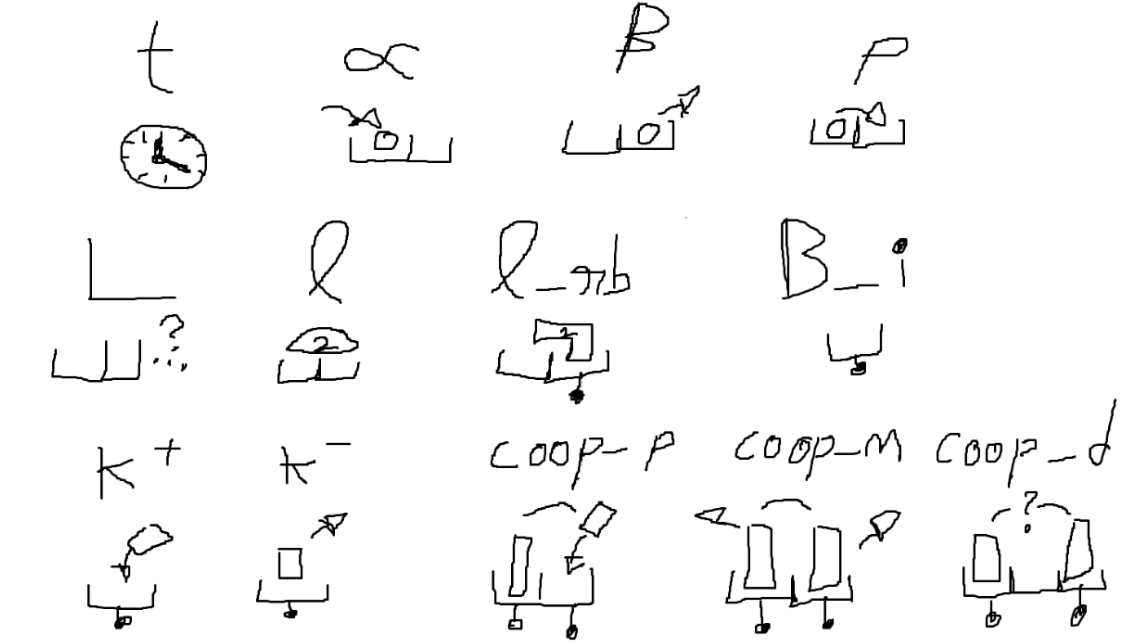 t α β ρ
L l l_nb B_i
?
2 2
K⁺ K⁻ coop_p coop_m coop_d
?